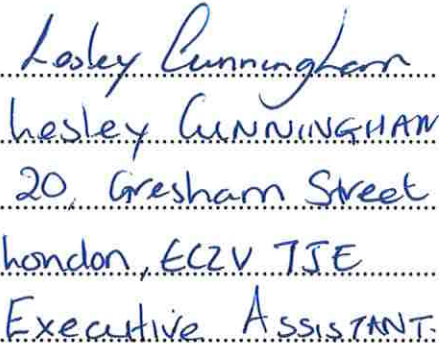 Lesley Cunningham
Lesley CUNNINGHAM
20, Gresham Street
London, EC2V 7JE
Executive ASSISTANT.